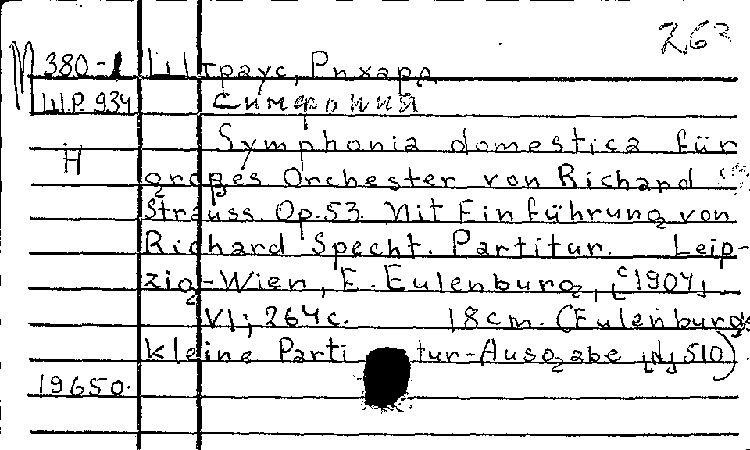 263
М 380-1 Штраус, Рихард
Ш.Р. 934 Симфония
Symphonia domestica für
Н
großes Orchester von Richard
Strauss. Op. 53. Mit Einführung von
Richard Specht. Partitur. Leip-
zig-Wien, E. Eulenburg, [c1904]
VI; 264 с. 18 cm. (Eulenburgs
kleine Partitur-Ausgabe [N] 510)
19650.